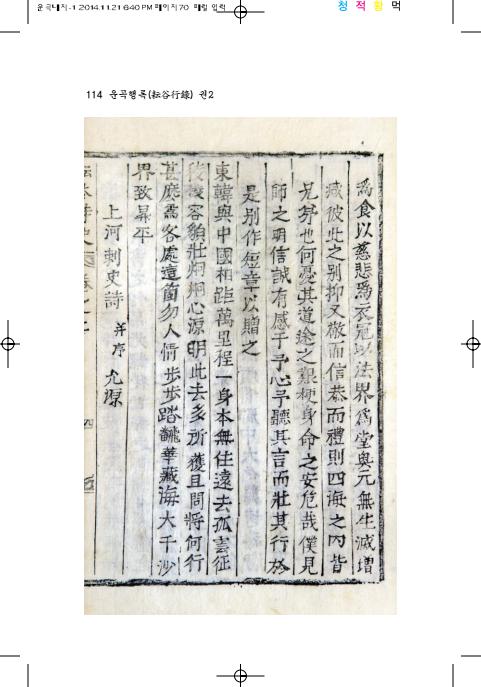 운곡내지-1 2014.11.21 6:40 PM 페이지70 매킬 입력
청 적 황 먹
114 운곡행록(耘谷行錄) 권2
爲食以慈悲爲衣冠以法界爲堂奧元無生滅增
減彼此之別抑又敬而信恭而禮則四海之內皆
兄弟也何憂其道途之艱梗身命之安危哉僕見
師之明信誠有感于予心予聽其言而壯其行於
是別作短章以贈之
東韓與中國相距萬里程一身本無住遠去孤雲征
稜稜容貌壯炯炯心源明此去多所獲且問將何行
甚麽需客處這箇勿人情步步踏飜華藏海大千沙
界致昇平
上河刺史詩 并序 允源
四